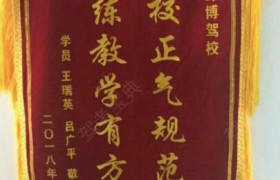 博驾校
校正气规范
练教学有方
学员王瑞英 吕广平 敬
二〇一八年